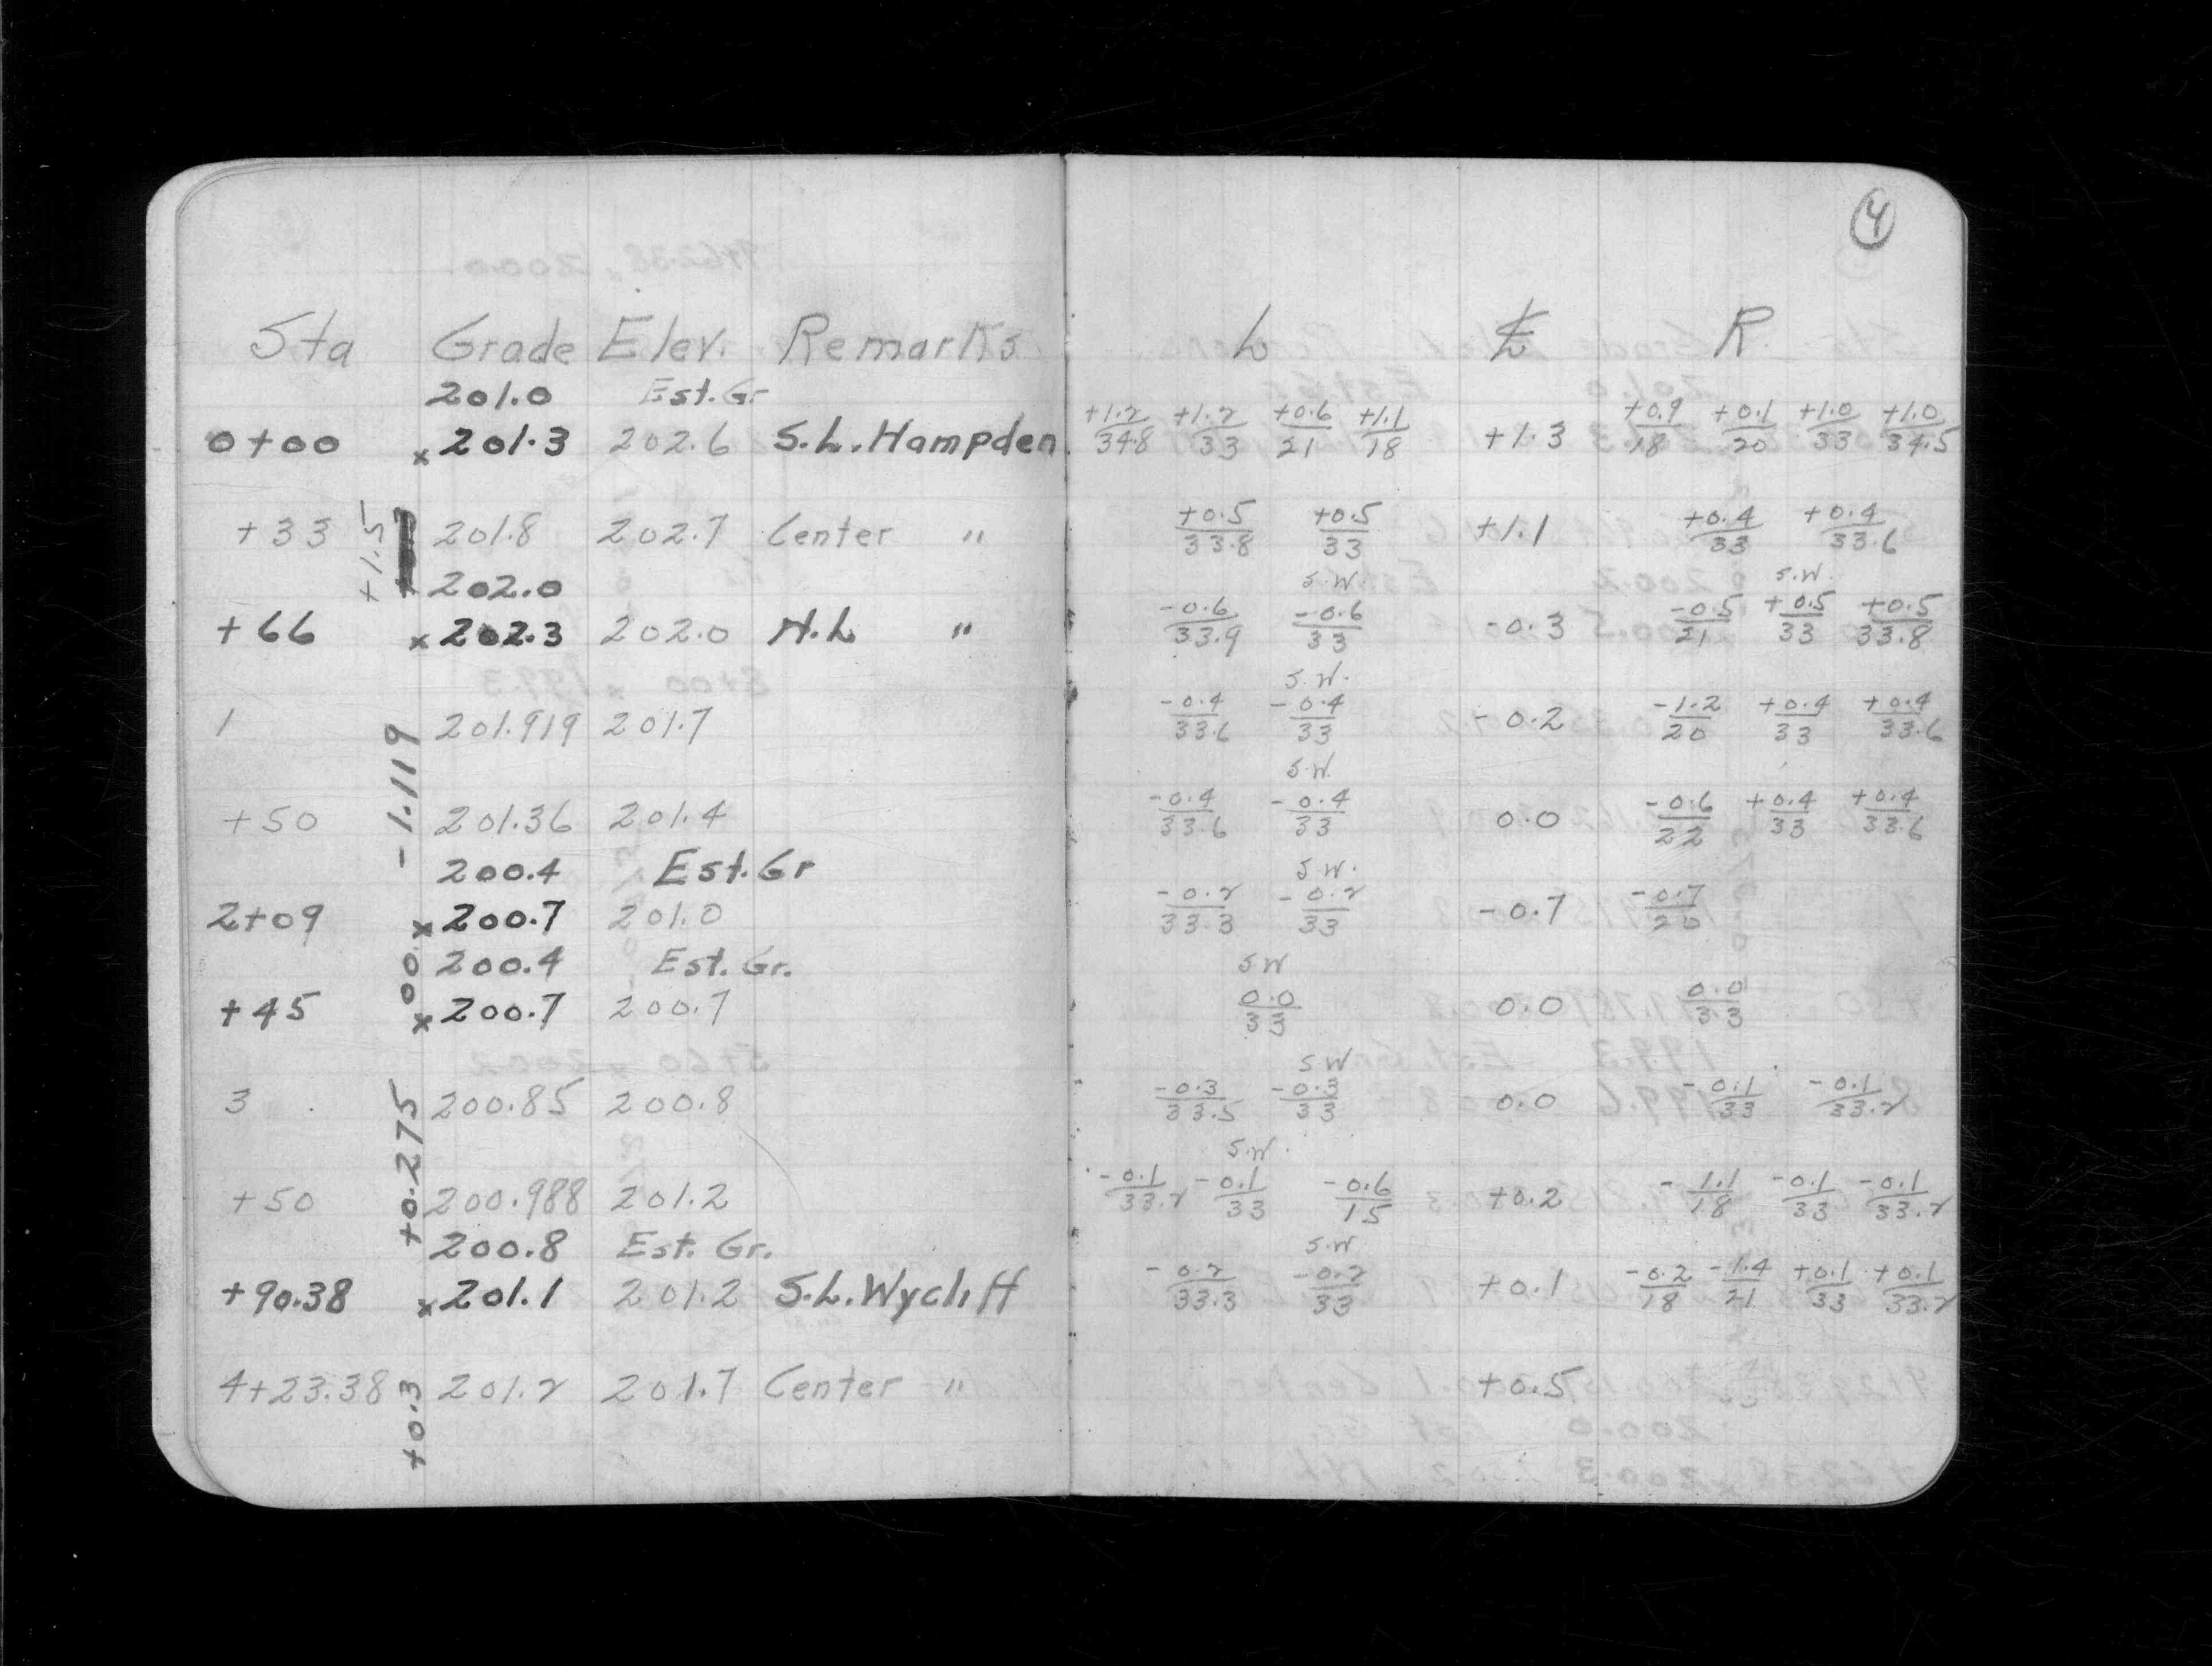 4
Sta Grade Elev. Remarks L ℄ R
201.0 Est. Gr
0+00 x 201.3 202.6 S.L. Hampden +1.2/34.8 +1.2/33 +0.6/21 +1.1/18 +1.3 +0.9/18 +0.1/20 +1.0/33 +1.0/34.5
+1.5
+33 201.8 202.7 Center " +0.5/33.8 +0.5/33 +1.1 +0.4/33 +0.4/33.6
202.0 S.W. S.W.
+66 x 202.3 202.0 N.L " -0.6/33.9 -0.6/33 -0.3 -0.5/21 +0.5/33 +0.5/33.8
S.W.
1 201.919 201.7 -0.4/33.6 -0.4/33 -0.2 -1.2/20 +0.4/33 +0.4/33.6
-1.119
S.W.
+50 201.36 201.4 -0.4/33.6 -0.4/33 0.0 -0.6/22 +0.4/33 +0.4/33.6
200.4 Est. Gr S.W.
2+09 x 200.7 201.0 -0.2/33.3 -0.2/33 -0.7 -0.7/20
00.
200.4 Est. Gr. S.W
+45 x 200.7 200.7 0.0/33 0.0 0.0/33
S W
3 200.85 200.8 -0.3/33.5 -0.3/33 0.0 -0.1/33 -0.1/33.2
+0.275
S.W.
+50 200.988 201.2 -0.1/33.2 -0.1/33 -0.6/15 +0.2 -1.1/18 -0.1/33 -0.1/33.2
200.8 Est. Gr. S.W.
+90.38 x 201.1 201.2 S.L. Wycliff -0.2/33.3 -0.2/33 +0.1 -0.2/18 -1.4/21 +0.1/33 +0.1/33.2
+0.3
4+23.38 201.2 201.7 Center " +0.5